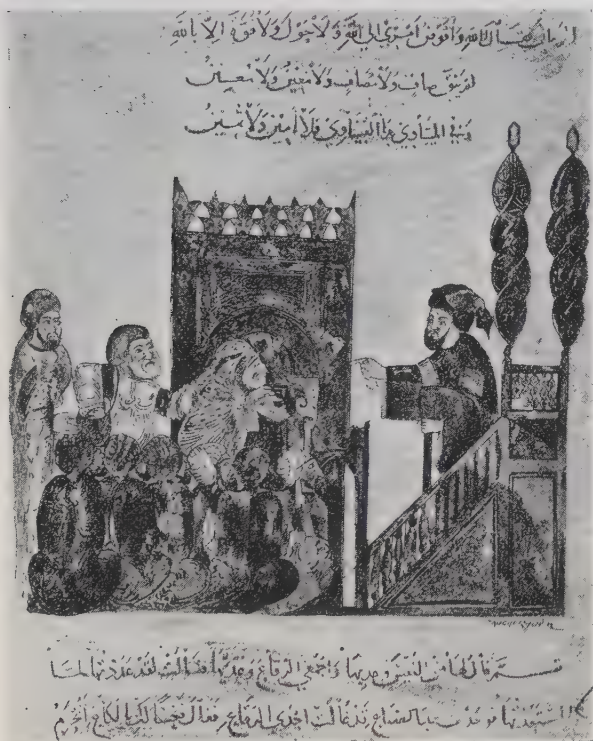 فقال انا لله وأفوض أمري إلى الله ولا حول ولا قوة إلا بالله
لم يبق صاف ولا مصاف ولا معين ولا معين
وفي المساوي بدا التساوي فلا أمين ولا ثمين
ثم قال لها مني النفس وعديها واجمعي الرقاع وعديها فقالت لقد عددتها لما
استعدتها فوجدت يد الضياع قد غالت احدى الرقاع فقال تعسا لك يا لكاع أنحرم